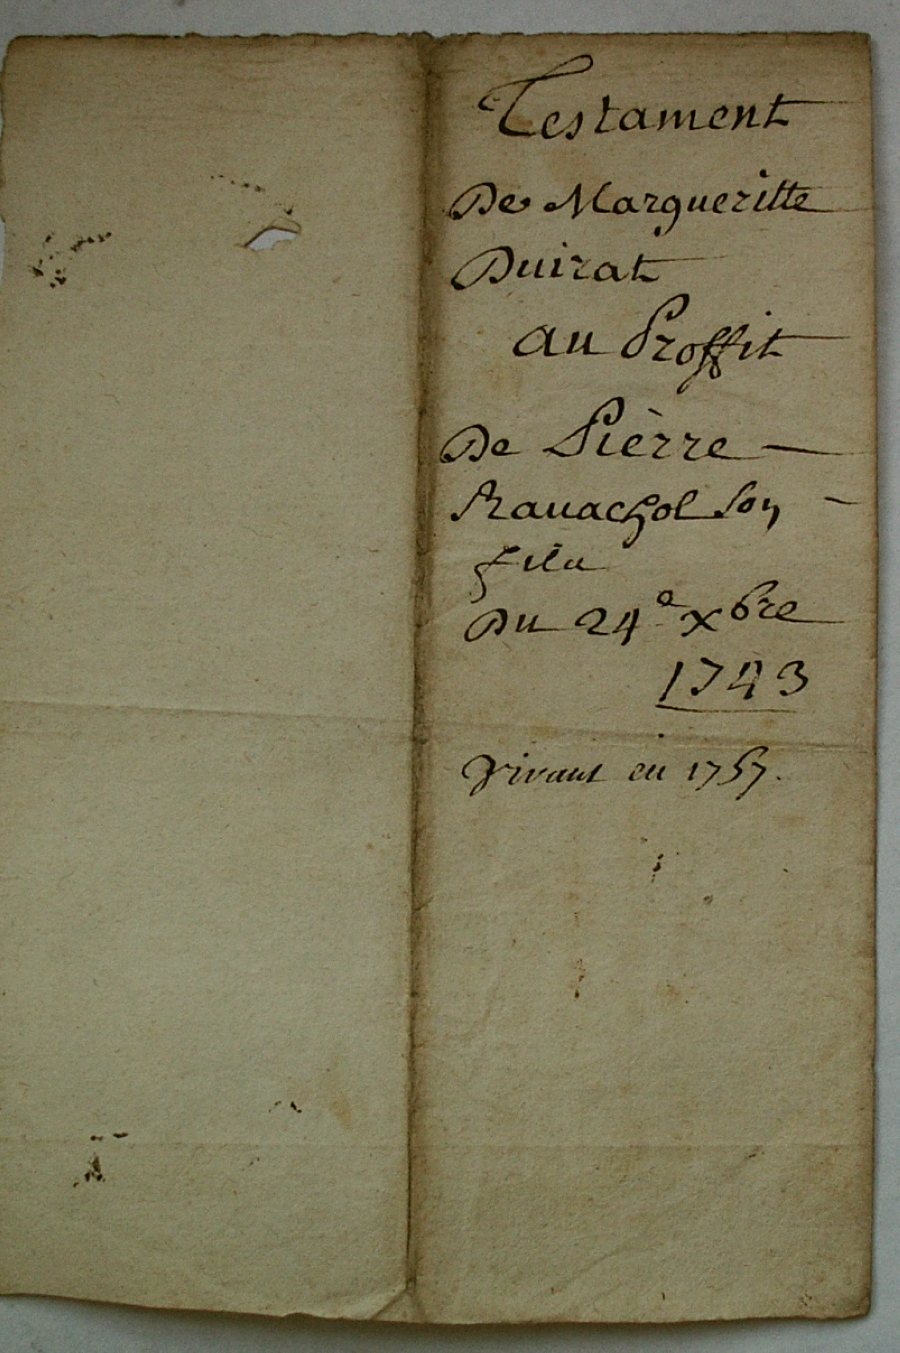 Testament
De Margueritte
Duirat
au Proffit
De Pièrre
Ravachol son
fils
Du 24e xbre
1743
Vivant en 1757.